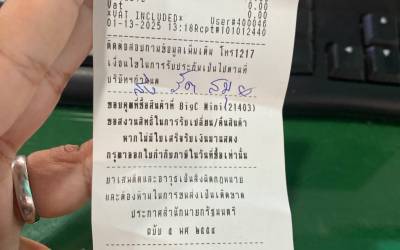 Vat 0.00
*VAT INCLUDED* User#400046
01-13-2025 13:18 Rcpt#101012440
ติดต่อสอบถามข้อมูลเพิ่มเติม โทร1217
เงื่อนไขในการรับประกันเป็นไปตามที่
บริษัทกำหนด
ขอบคุณที่ซื้อสินค้าที่ BigC Mini(21403)
ขอสงวนสิทธิ์ในการรับเปลี่ยน/คืนสินค้า
หากไม่มีใบเสร็จรับเงินมาแสดง
กรุณาออกใบกำกับภาษีในวันที่ซื้อเท่านั้น
ยาเสพติดและอาวุธเป็นสิ่งผิดกฎหมาย
และต้องห้ามในการขนส่งเป็นเด็ดขาด
ประกาศสำนักนายกรัฐมนตรี